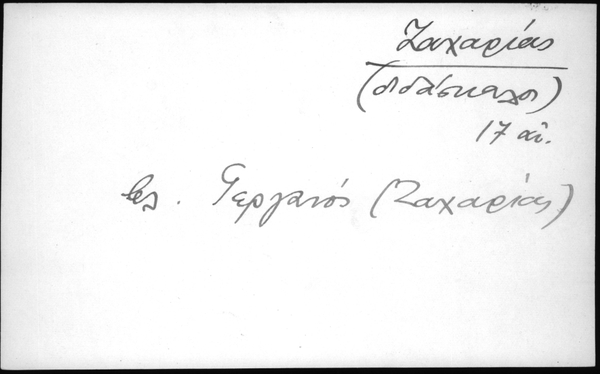 Ζαχαρίας
(διδάσκαλοι)
17 αἰ.
βλ. Γεργανός (Ζαχαρίας)